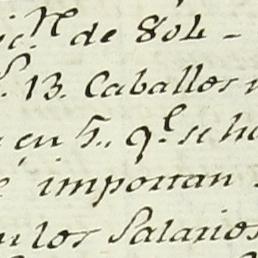 de 804 -
13. Caballos
en 5., q.^l se ha
importan
los Salarios